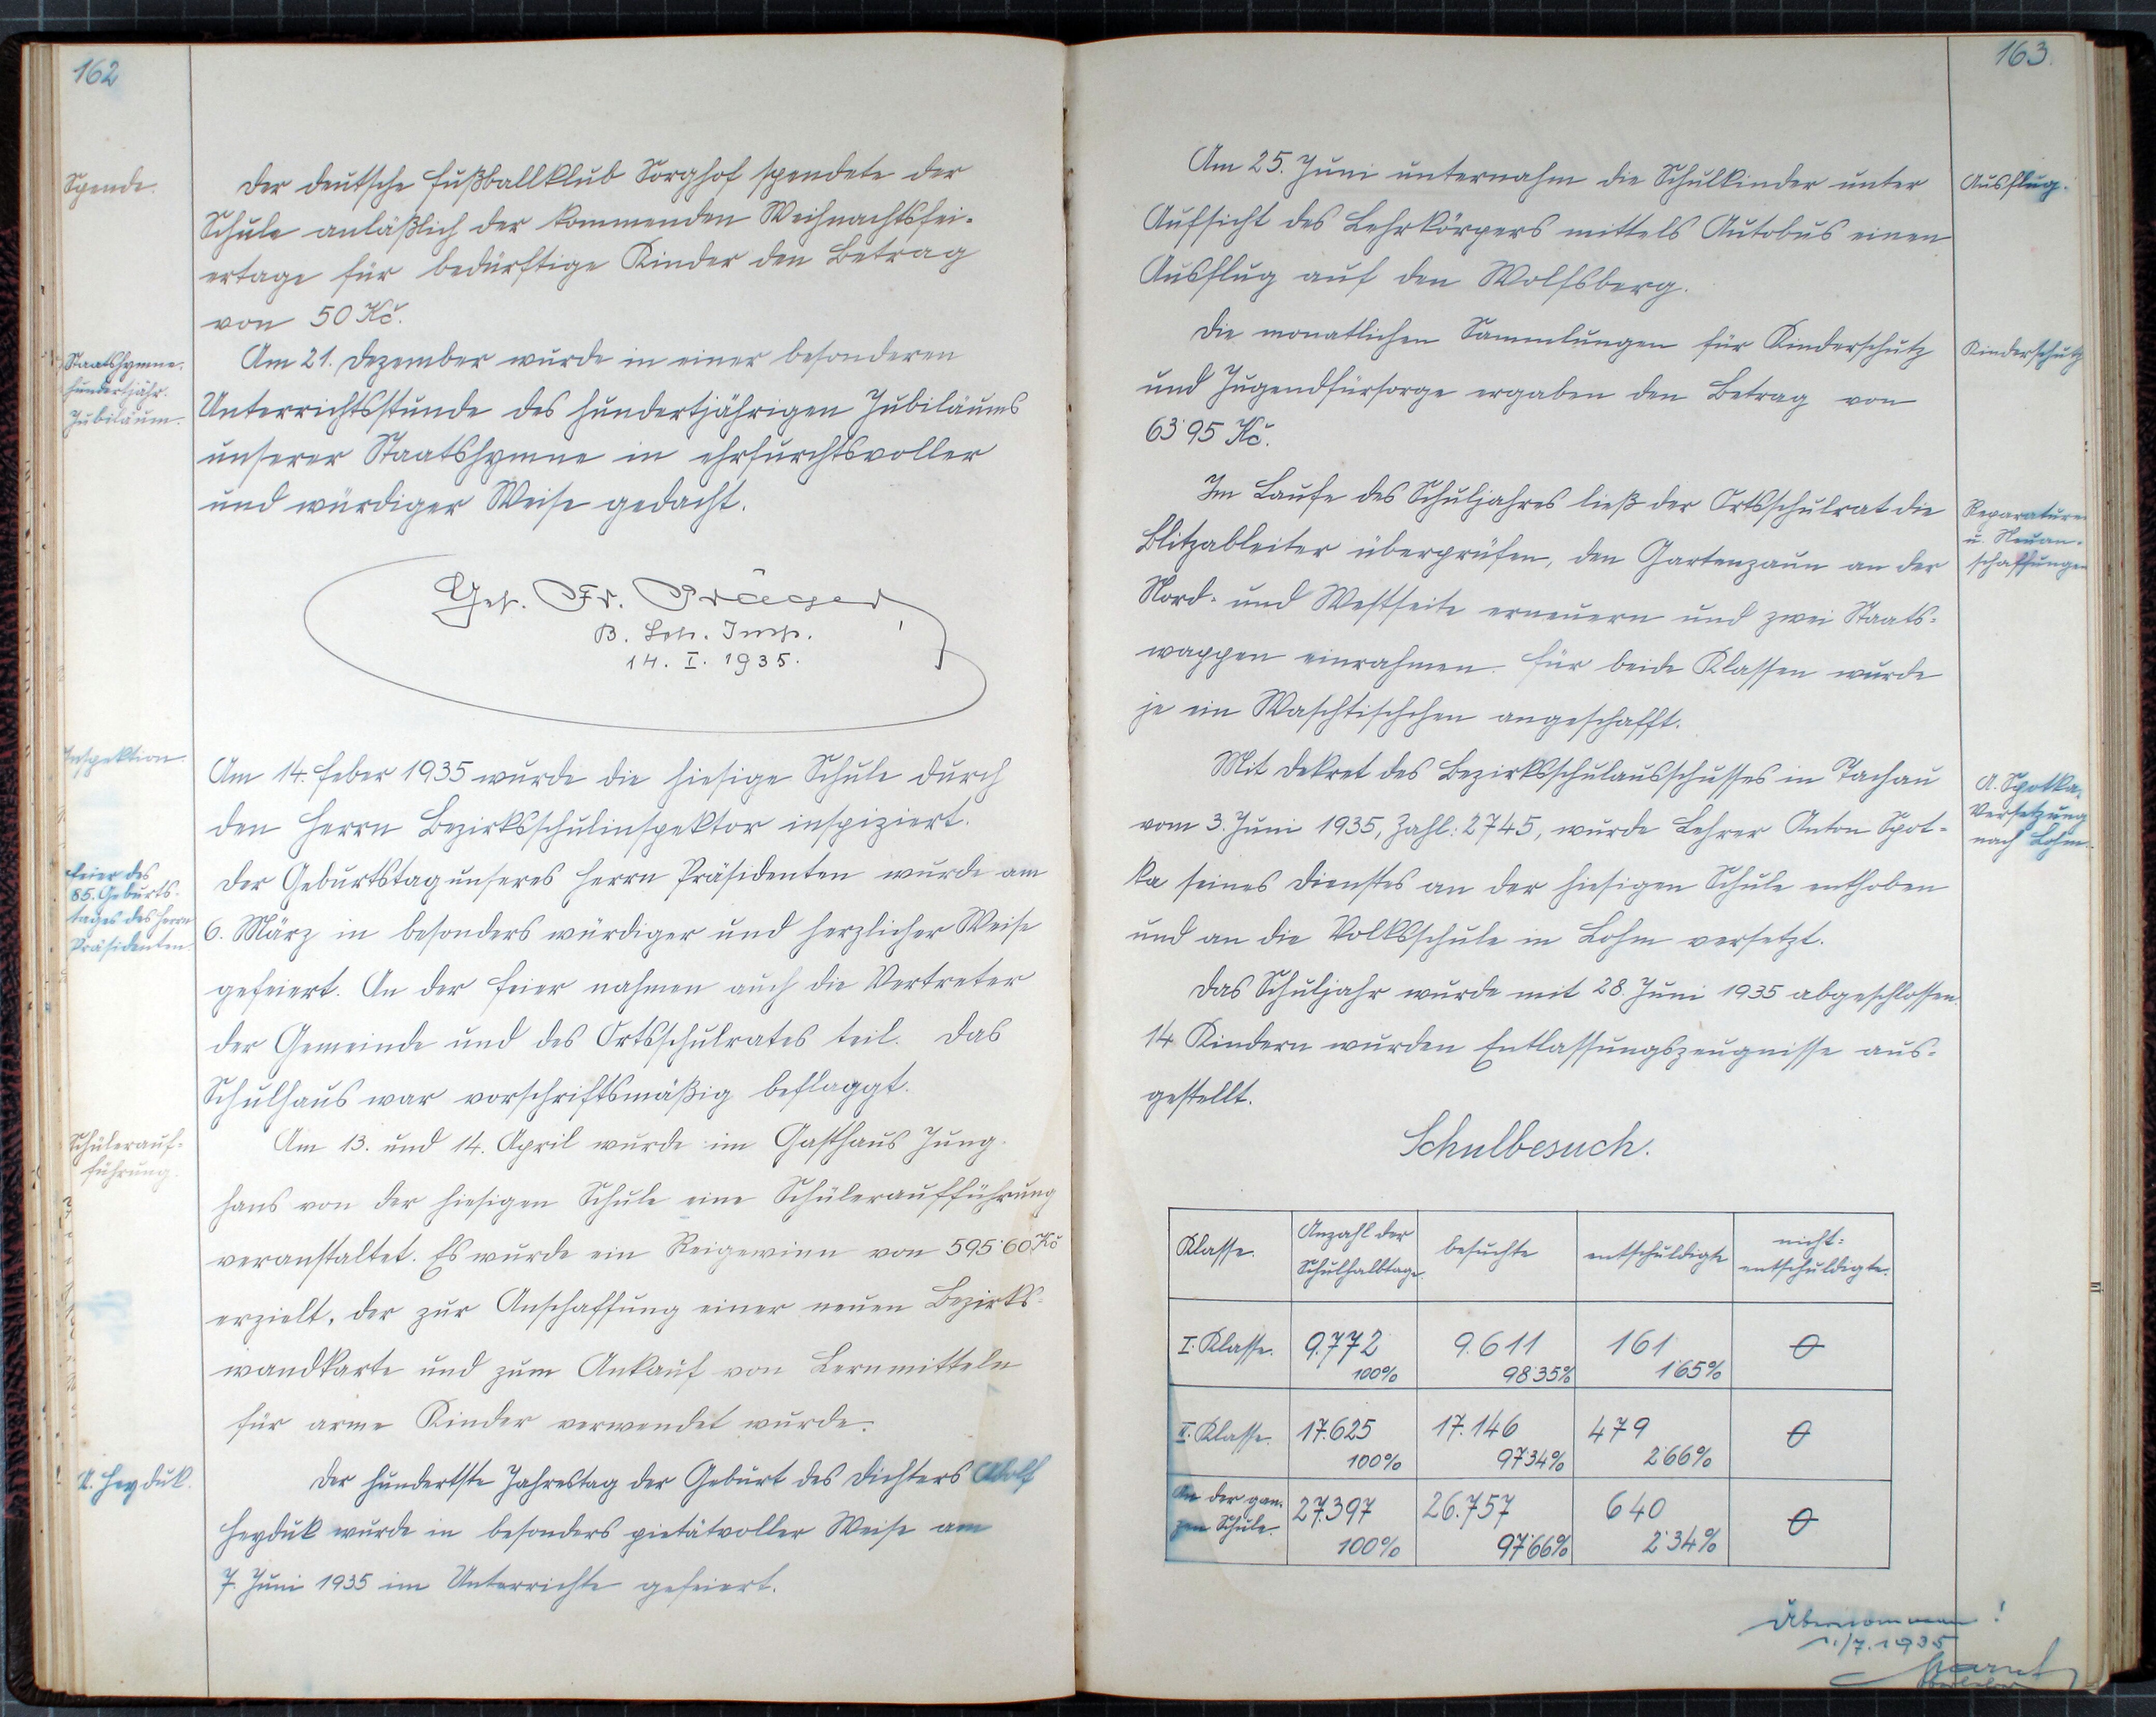 162
Spende.
Der deutsche Fußballklub Sorghof spendete der
Schule anläßlich der kommenden Weihnachtsfei-
ertage für bedürftige Kinder den Betrag
von 50 Kč.
Staatshymne.
hundertjähr.
Jubiläum.
Am 21. Dezember wurde in einer besonderen
Unterrichtsstunde des hundertjährigen Jubiläums
unserer Staatshymne in ehrfurchtsvoller
und würdiger Weise gedacht.
Ges. Fr. Präger
B. Sch. Insp.
14. I. 1935.
Inspektion.
Am 14. Feber 1935 wurde die hiesige Schule durch
den Herrn Bezirksschulinspektor inspiziert.
Feier des
85. Geburts-
tages des Herrn
Präsidenten
Der Geburtstag unseres Herrn Präsidenten wurde am
6. März in besonders würdiger und herzlicher Weise
gefeiert. An der Feier nahmen auch die Vertreter
der Gemeinde und des Ortsschulrates teil. Das
Schulhaus war vorschriftsmäßig beflaggt.
Schülerauf-
führung.
Am 13. und 14. April wurde im Gasthaus Jung-
hans von der hiesigen Schule eine Schüleraufführung
veranstaltet. Es wurde ein Reigewinn von 595·60 Kč
erzielt, der zur Anschaffung einer neuen Bezirks-
wandkarte und zum Ankauf von Lernmitteln
für arme Kinder verwendet wurde.
A. Heyduk.
Der hundertste Jahrestag der Geburt des Dichters Adolf
Heyduk wurde in besonders pietätvoller Weise am
7. Juni 1935 im Unterrichte gefeiert.
163.
Am 25. Juni unternahm die Schulkinder unter
Aufsicht des Lehrkörpers mittels Autobus einen
Ausflug auf den Wolfsberg.
Ausflug.
Die monatlichen Sammlungen für Kinderschutz
und Jugendfürsorge ergaben den Betrag von
63·95 Kč.
Kinderschutz
Im Laufe des Schuljahres ließ der Ortsschulrat die
Blitzableiter überprüfen, den Gartenzaun an der
Nord- und Westseite erneuern und zwei Staats-
wappen einrahmen. Für beide Klassen wurde
je ein Waschtischchen angeschafft.
Reparaturen
u. Neuan-
schaffungen
Mit Dekret des Bezirksschulausschusses in Tachau
vom 3. Juni 1935, Zahl: 2745, wurde Lehrer Anton Spot-
ka seines Dienstes an der hiesigen Schule enthoben
und an die Volksschule in Lohm versetzt.
A. Spotka.
Versetzung
nach Lohm.
Das Schuljahr wurde mit 28. Juni 1935 abgeschlossen.
14 Kindern wurden Entlassungszeugnisse aus-
gestellt.
Schulbesuch.
Klasse. Anzahl der Schulhalbtage. besuchte entschuldigte nicht-entschuldigte.
I. Klasse. 9.772 9.611 161 0
100% 98·35% 1·65%
II. Klasse. 17.625 17.146 479 0
100% 97·34% 2·66%
An der gan-
zen Schule. 27.397 26.757 640 0
100% 97·66% 2·34%
Übernommen!
1./7. 1935